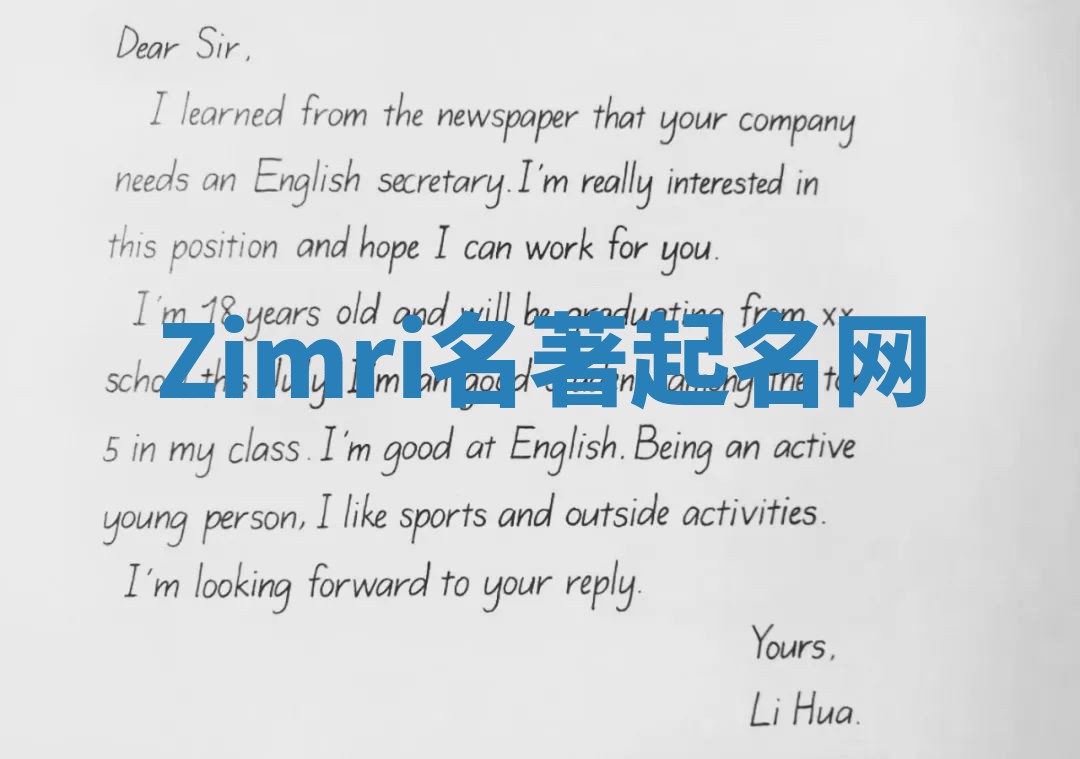 Dear Sir,
I learned from the newspaper that your company
needs an English secretary. I'm really interested in
this position and hope I can work for you.
I'm 18 years old and will be graduating from xx
Zimri名著起名网
school this July. I'm an good student among the top
5 in my class. I'm good at English. Being an active
young person, I like sports and outside activities.
I'm looking forward to your reply.
Yours,
Li Hua.